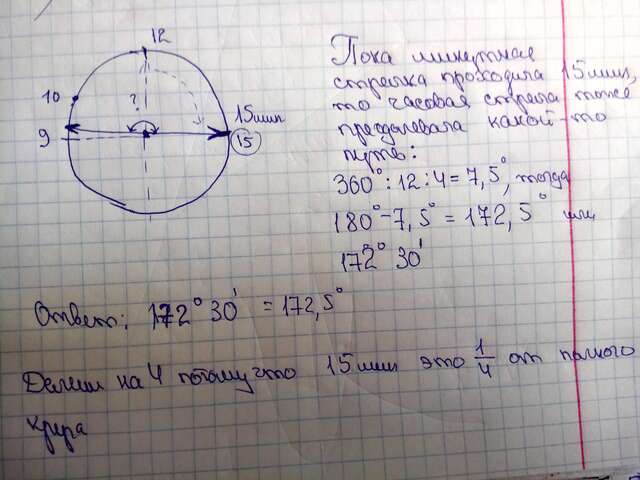 12
10
?
9
15 мин
15
Пока минутная
стрелка проходила 15 мин,
то часовая стрелка тоже
преодолевала какой-то
путь:
360° : 12 : 4 = 7,5°, тогда
180° - 7,5° = 172,5° или
172° 30'
Ответ: 172° 30' = 172,5°
Делим на 4 потому что 15 мин это 1/4 от полного
круга